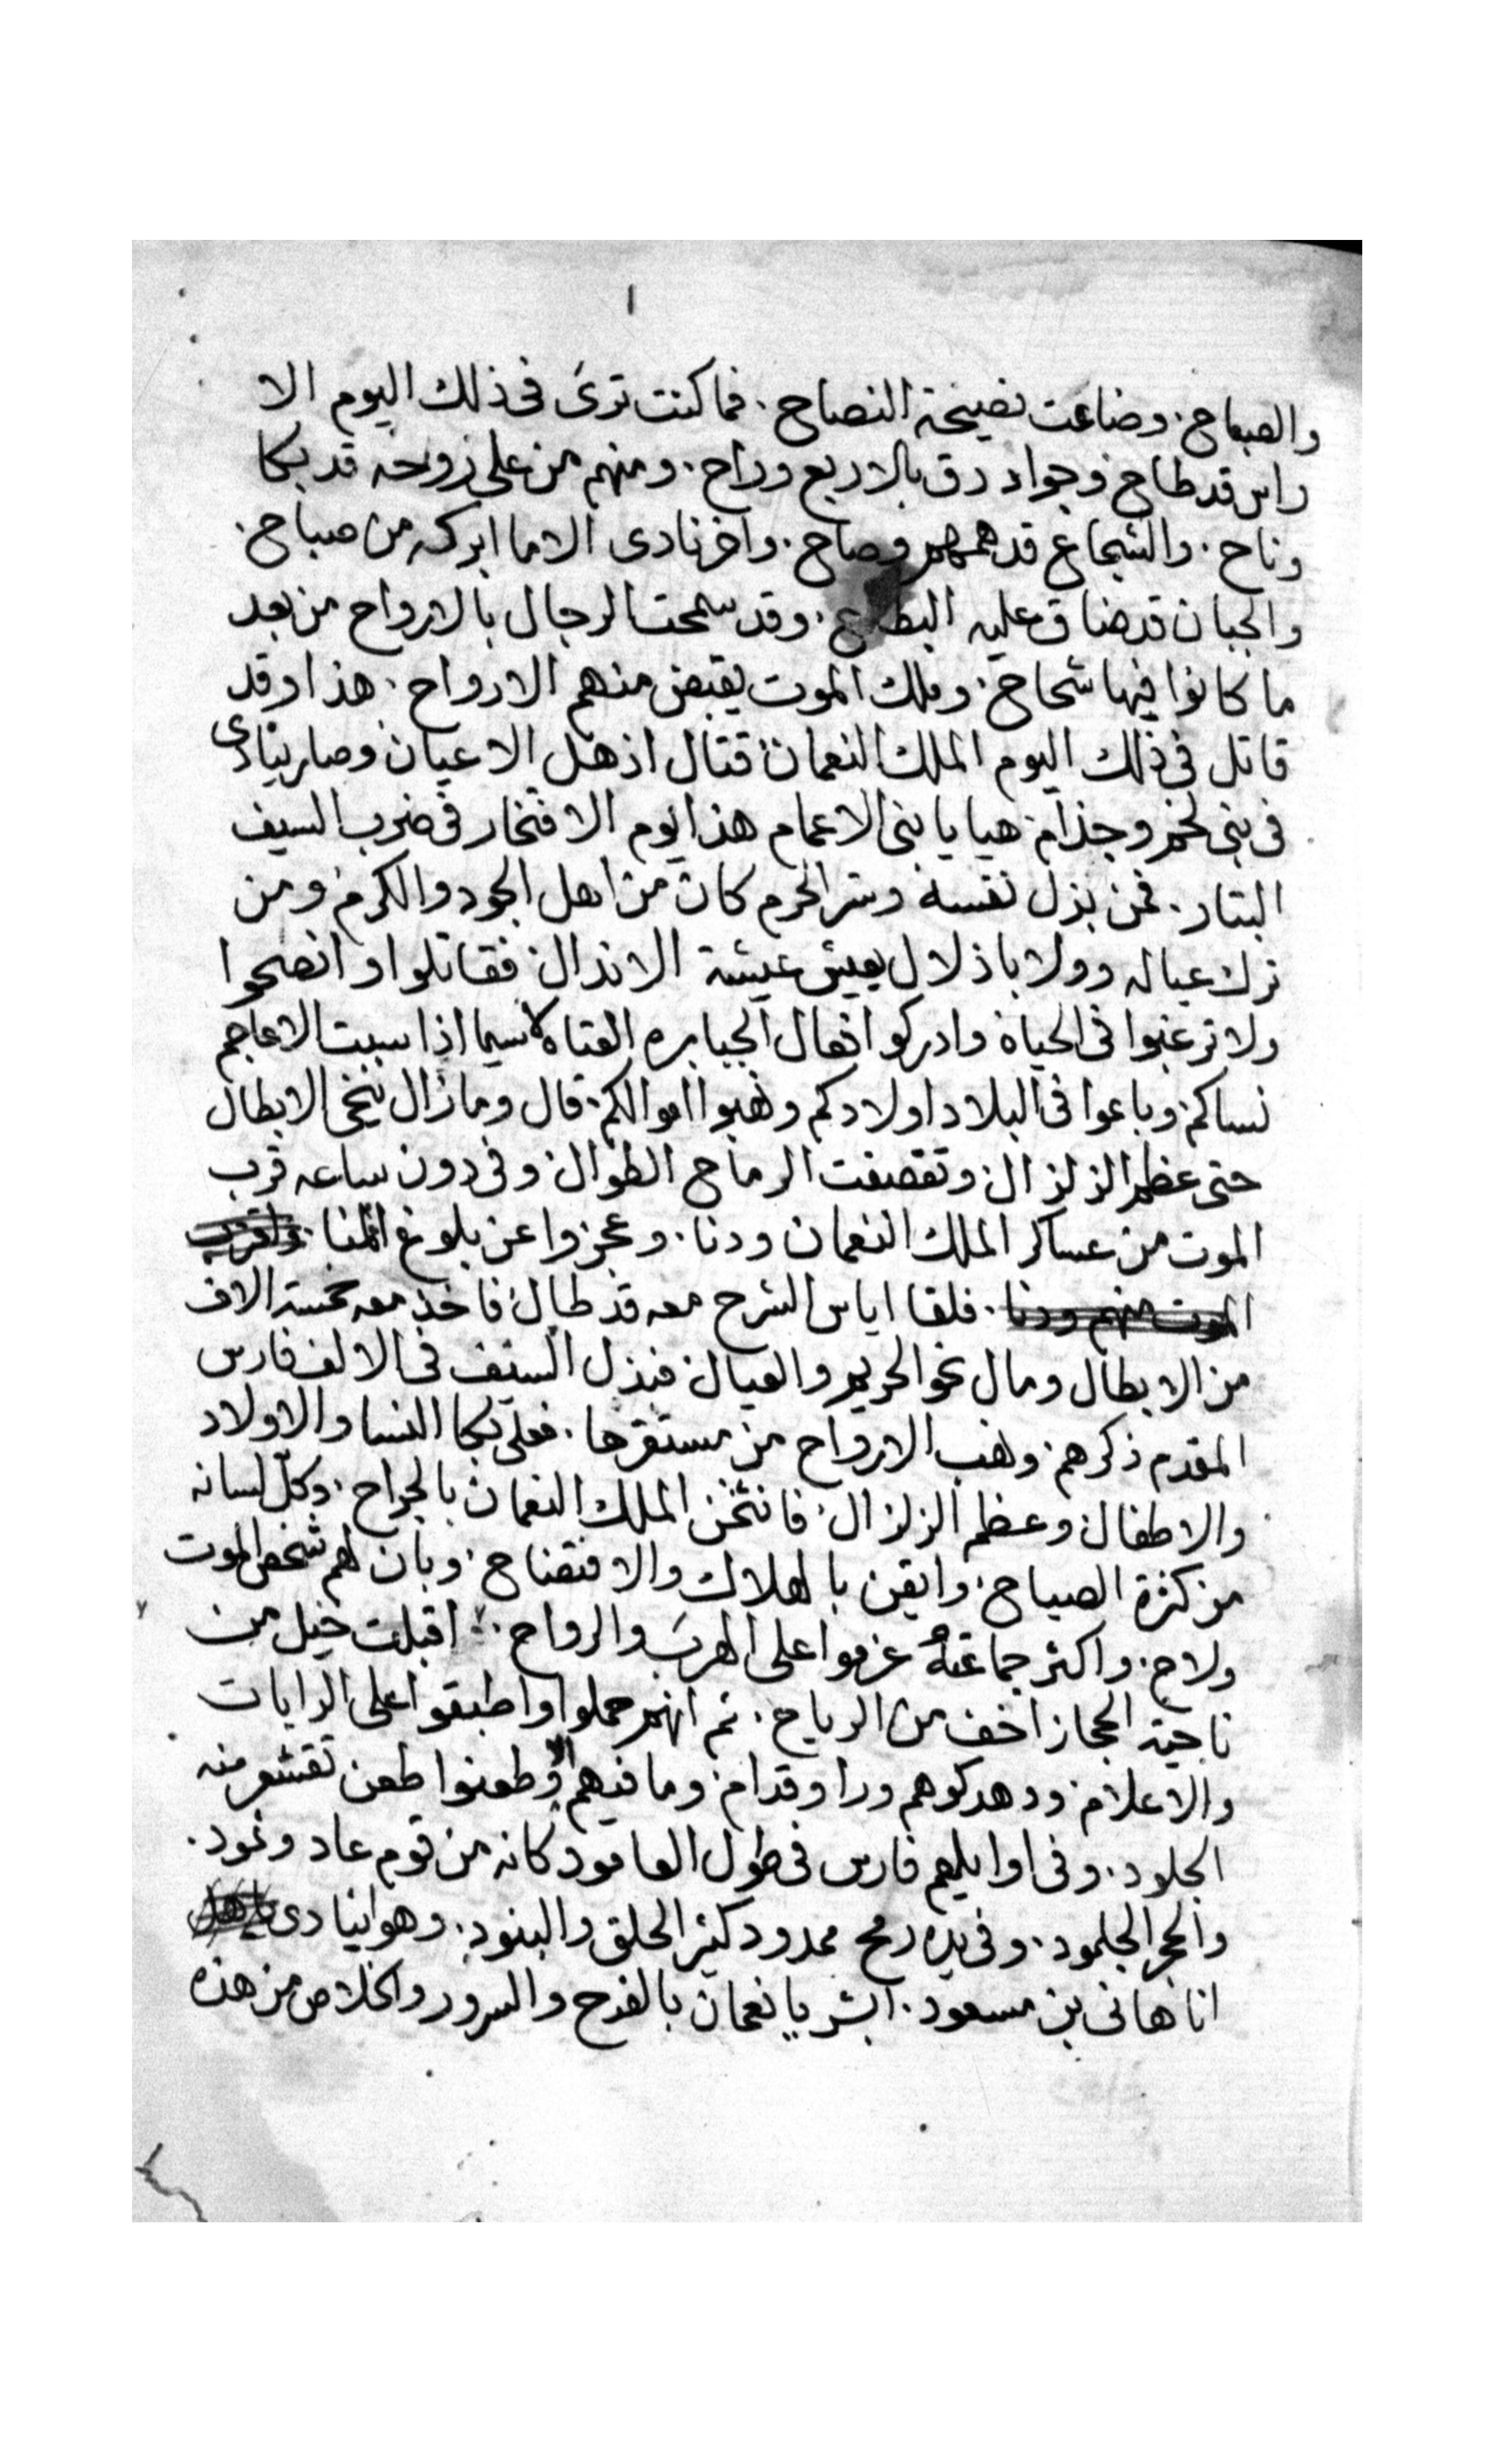 ا
والصباح. وضاعت نصيحة النصاح. فما كنت ترى فى ذلك اليوم الا
راس قد طاح وجواد دق بالاربع وراح. ومنهم من على زوحه قد بكا
وناح. والشجاع قد همهم وصاح. واخر نادى الا ما ابركه من صباح.
والجبان قد ضاق عليه البطاح. وقد سمحت الرجال بالارواح من بعد
ما كانوا فيها شحاح. وملك الموت يقبض منهم الارواح. هذا وقد
قاتل فى ذلك اليوم الملك النعمان قتال اذهل الاعيان وصار ينادى
فى بنى لخم وجذام هيا يا بنى الاعمام هذا يوم الافتخار فى ضرب السيف
البتار. فمن بذل نفسه وستر الحرم كان من اهل الجود والكرم ومن
ترك عياله وولا باذلال يعيش عيشة الاندال فقاتلوا وانصحوا
ولا ترغبوا فى الحياة وادركو افعال الجبابره العتاه لاسيما اذا سبت الاعاجم
نساكم وباعوا فى البلاد اولادكم ونهبوا اموالكم. قال وما زال ينخى الابطال
حتى عظم الزلزال وتقصفت الرماح الطوال وفى دون ساعه قرب
الموت من عساكر الملك النعمان ودنا. وعجزوا عن بلوغ المنا. واقرب
الموت منهم ودنا. فلقا اياس الشرح معه قد طال فاخذ معه خمسة الاف
من الابطال ومال نحو الحريم والعيال فبذل السيف فى الالف فارس
المقدم ذكرهم ونهب الارواح من مستقرها. فعلى بكا النسا والاولاد
والاطفال وعظم الزلزال. فانثخن الملك النعمان بالجراح. وكلّ لسانه
من كثرة الصياح. وايقن بالهلاك والافتضاح. وبان لهم شخص الموت
ولاح. واكثر جماعته عزموا على الهرب والرواح. اقبلت خيل من
ناحية الحجاز اخف من الرياح. ثم انهم حملوا واطبقوا على الرايات
والاعلام ودهدكوهم ورا وقدام وما فيهم الا وطعنوا طعن تقشعر منه
الجلود. وفى اوايلهم فارس فى طول العامود كانه من قوم عاد وثمود.
والحجر الجلمود. وفى يده رمح ممدود كثير الحلق والبنود. وهو اينادى
انا هانى بن مسعود. ابشر يا نعمان بالفرح والسرور والخلاص من هذه